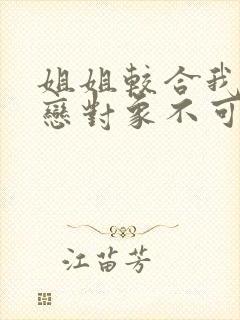 姐姐較合我
戀對象不可
江苗芳